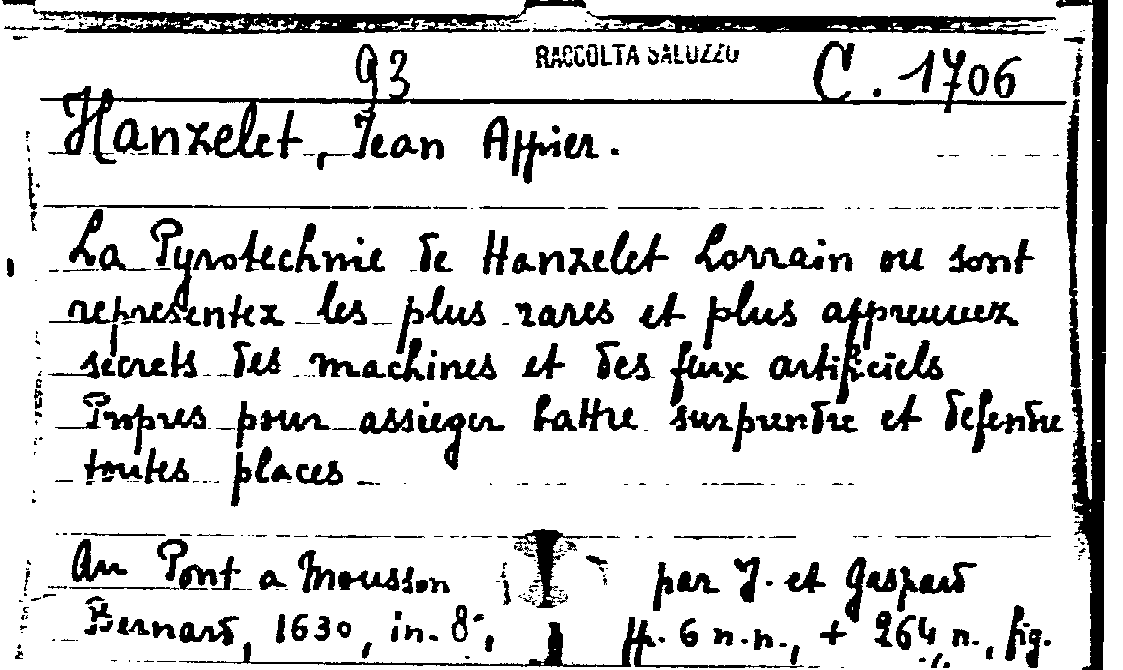 93 RACCOLTA SALUZZO C. 1706
Hanzelet, Jean Appier.
La Pyrotechnie de Hanzelet Lorrain ou sont
representez les plus rares et plus appreuuez
secrets des machines et des feux artificiels
Propres pour assieger battre surprendre et defendre
toutes places
Au Pont a Mousson par J. et Gaspard
Bernard, 1630, in-8°, ff. 6 n.n., + 264 n., fig.